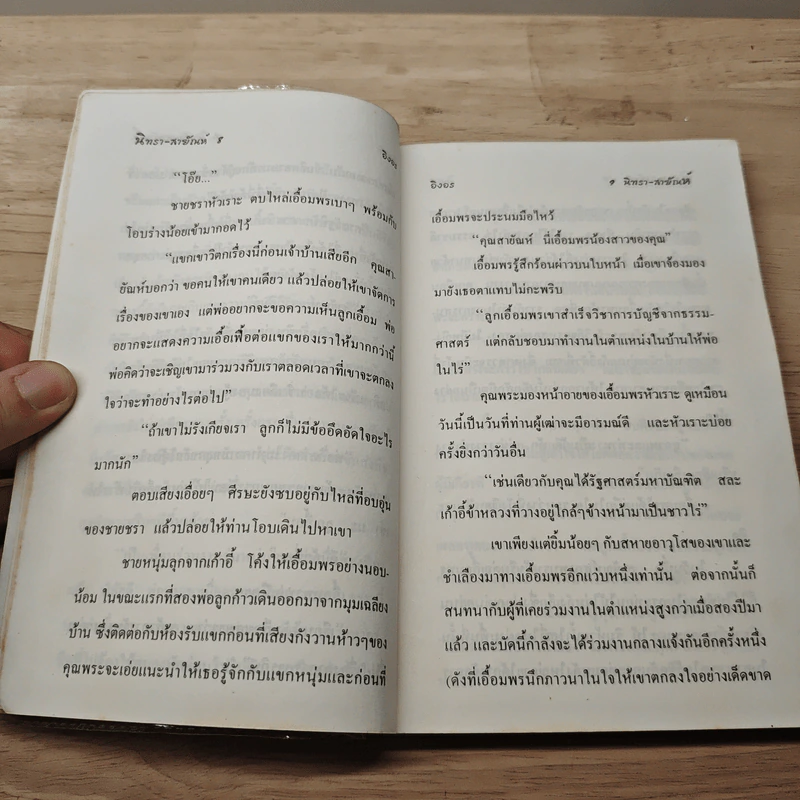 นิทรา-สายัณห์ 8
อิงอร
“โอ๊ย...”
ชายชราหัวเราะ ตบไหล่เอื้อมพรเบาๆ พร้อมกับ
โอบร่างน้อยเข้ามากอดไว้
“แขกเขาวิตกเรื่องนี้ก่อนเจ้าบ้านเสียอีก คุณสา-
ยัณห์บอกว่า ขอคนให้เขาคนเดียว แล้วปล่อยให้เขาจัดการ
เรื่องของเขาเอง แต่พ่ออยากจะขอความเห็นลูกเอื้อม พ่อ
อยากจะแสดงความเอื้อเฟื้อต่อแขกของเราให้มากกว่านี้
พ่อคิดว่าจะเชิญเขามาร่วมวงกับเราตลอดเวลาที่เขาจะตกลง
ใจว่าจะทำอย่างไรต่อไป”
“ถ้าเขาไม่รังเกียจเรา ลูกก็ไม่มีข้ออึดอัดใจอะไร
มากนัก”
ตอบเสียงเอื่อยๆ ศีรษะยังซบอยู่กับไหล่ที่อบอุ่น
ของชายชรา แล้วปล่อยให้ท่านโอบเดินไปหาเขา
ชายหนุ่มลุกจากเก้าอี้ โค้งให้เอื้อมพรอย่างนอบ-
น้อม ในขณะแรกที่สองพ่อลูกก้าวเดินออกมาจากมุมเฉลียง
บ้าน ซึ่งติดต่อกับห้องรับแขกก่อนที่เสียงกังวานห้าวๆของ
คุณพระจะเอ่ยแนะนำให้เธอรู้จักกับแขกหนุ่มและก่อนที่
อิงอร
9 นิทรา-สายัณห์
เอื้อมพรจะประนมมือไหว้
“คุณสายัณห์ นี่เอื้อมพรน้องสาวของคุณ”
เอื้อมพรรู้สึกร้อนผ่าวบนใบหน้า เมื่อเขาจ้องมอง
มายังเธอตาแทบไม่กะพริบ
“ลูกเอื้อมพรเขาสำเร็จวิชาการบัญชีจากธรรม-
ศาสตร์ แต่กลับชอบมาทำงานในตำแหน่งในบ้านให้พ่อ
ในไร่”
คุณพระมองหน้าอายของเอื้อมพรหัวเราะ ดูเหมือน
วันนี้เป็นวันที่ท่านผู้เฒ่าจะมีอารมณ์ดี และหัวเราะบ่อย
ครั้งยิ่งกว่าวันอื่น
“เช่นเดียวกับคุณได้รัฐศาสตร์มหาบัณฑิต สละ
เก้าอี้ข้าหลวงที่วางอยู่ใกล้ๆข้างหน้ามาเป็นชาวไร่”
เขาเพียงแต่ยิ้มน้อยๆ กับสหายอาวุโสของเขาและ
ชำเลืองมาทางเอื้อมพรอีกแว่บหนึ่งเท่านั้น ต่อจากนั้นก็
สนทนากับผู้ที่เคยร่วมงานในตำแหน่งสูงกว่าเมื่อสองปีมา
แล้ว และบัดนี้กำลังจะได้ร่วมงานกลางแจ้งกันอีกครั้งหนึ่ง
(ดังที่เอื้อมพรนึกภาวนาในใจให้เขาตกลงใจอย่างเด็ดขาด